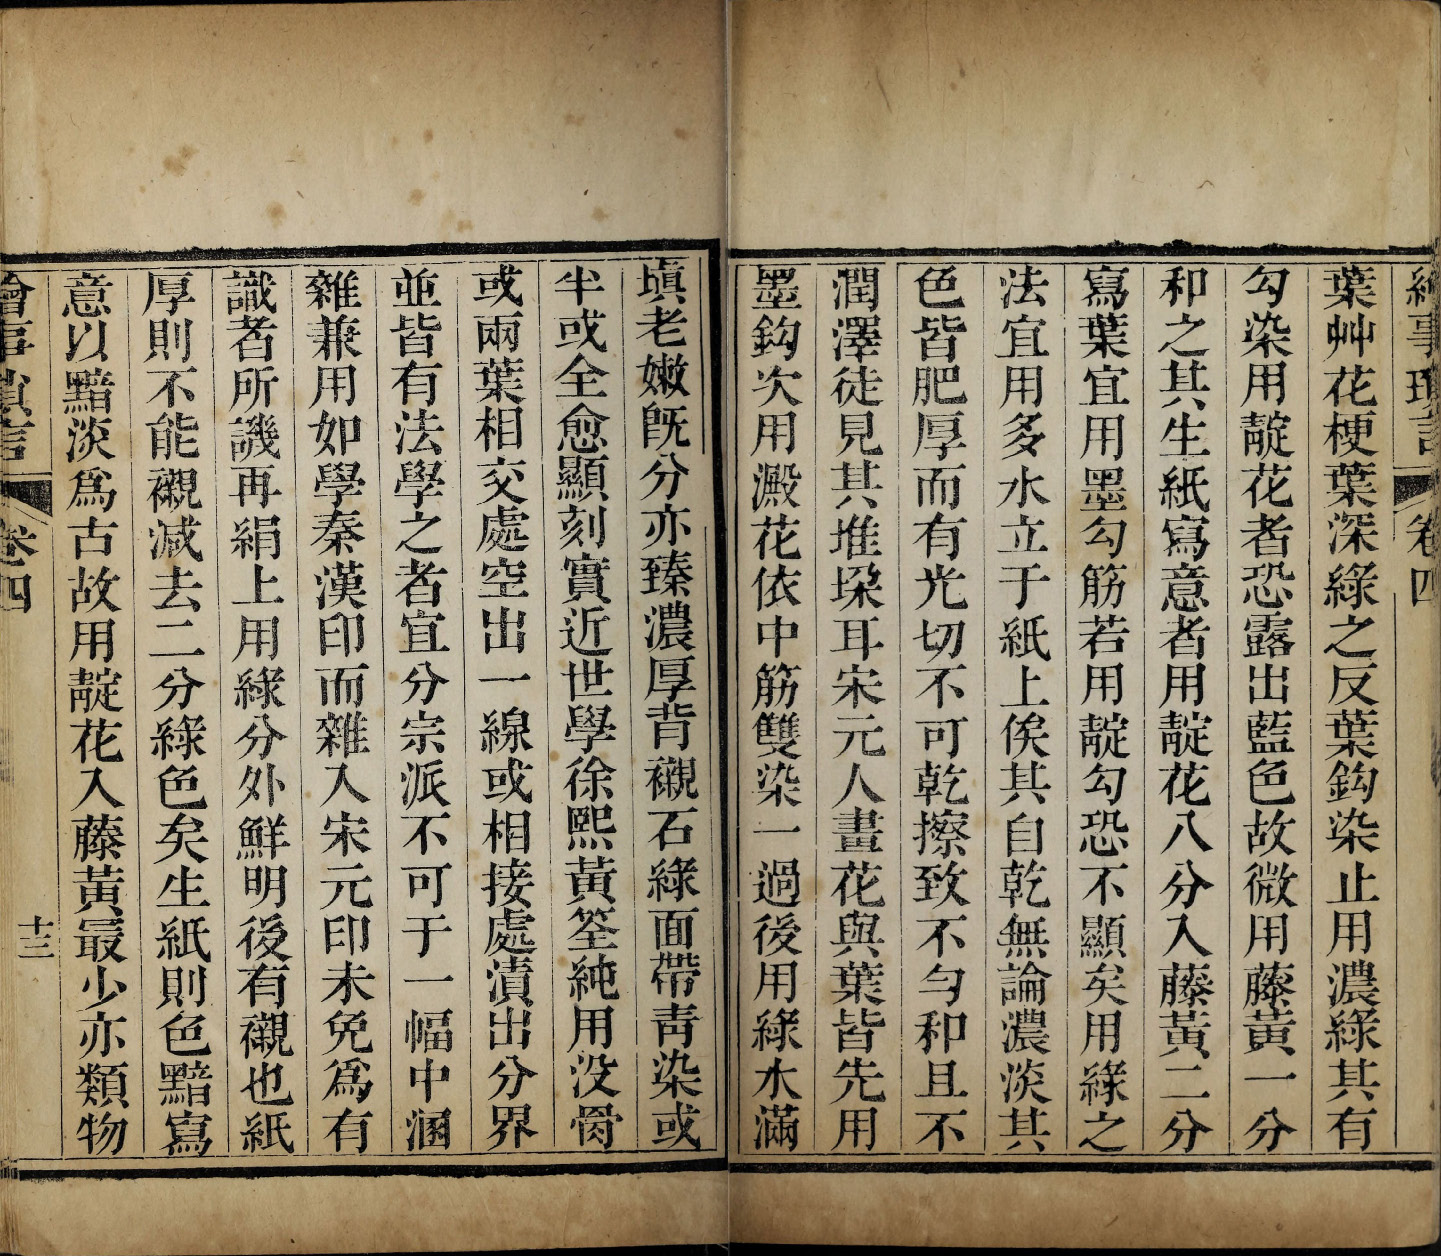 繪事瑣言 卷四
葉艸花梗葉深綠之反葉鈎染止用濃綠其有
勾染用靛花者恐露出藍色故微用藤黃一分
和之其生紙寫意者用靛花八分入藤黃二分
寫葉宜用墨勾筋若用靛勾恐不顯矣用綠之
法宜用多水立于紙上俟其自乾無論濃淡其
色皆肥厚而有光切不可乾擦致不勻和且不
潤澤徒見其堆垜耳宋元人畫花與葉皆先用
墨鈎次用澱花依中筋雙染一過後用綠水滿
塡老嫩旣分亦臻濃厚背襯石綠面帶靑染或
半或全愈顯刻實近世學徐熙黃筌純用沒骨
或兩葉相交處空出一線或相接處漬出分界
並皆有法學之者宜分宗派不可于一幅中溷
雜兼用如學秦漢印而雜入宋元印未免爲有
識者所譏再絹上用綠分外鮮明後有襯也紙
厚則不能襯减去二分綠色矣生紙則色黯寫
意以黯淡爲古故用靛花入藤黃最少亦類物
繪事瑣言 卷四 十三